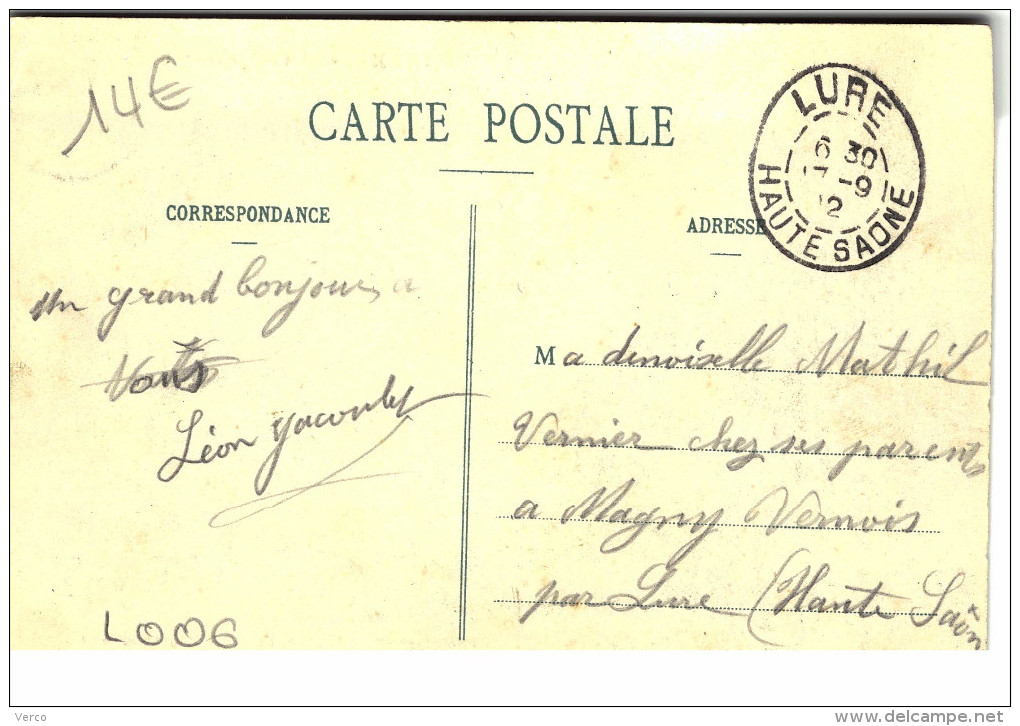 14€
CARTE POSTALE
LURE
6 30
7-9
12
HAUTE SAONE
CORRESPONDANCE
ADRESSE
un grand bonjour a
Vous
Léon
Mademoiselle Mathil
Vernier chez ses parents
a Magny Vernois
par Lure (Haute Saôn
L006
Verco
delcampe.net